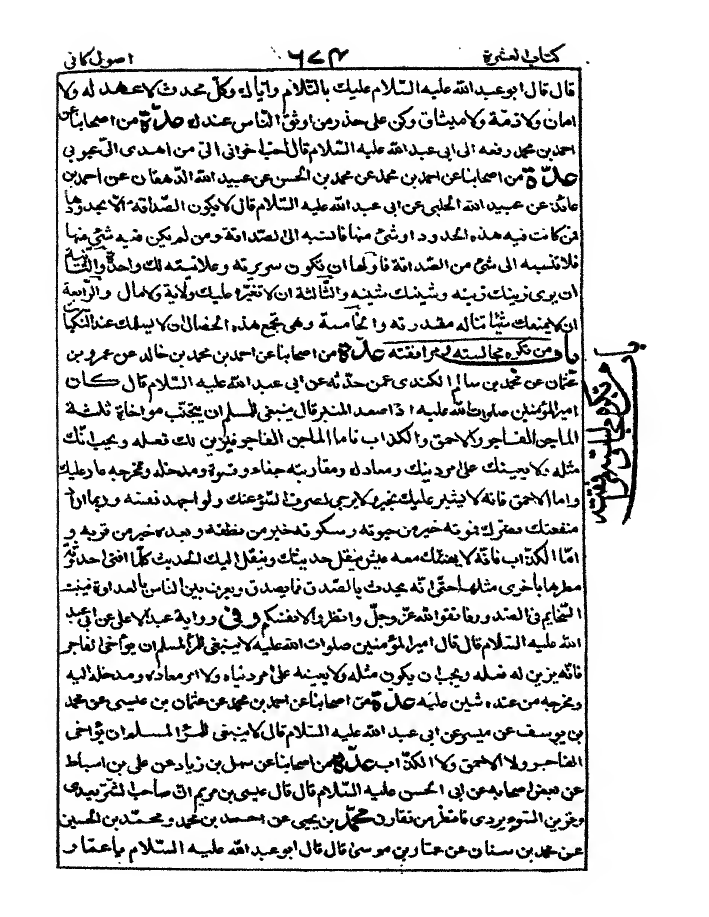 كتاب العشرة ٦٧٤ اصول كافى
قال قال ابو عبد الله عليه السّلام عليك بالتّلاد واياك وكلّ محدث لا عهد له ولا
امان ولا ذمّة ولا ميثاق وكن على حذر من اوثق النّاس عندك عدّة من اصحابنا عن
احمد بن محمد رفعه الى ابى عبد الله عليه السّلام قال احبّ اخوانى الىّ من اهدى الىّ عيوبى
عدّة من اصحابنا عن احمد بن محمد عن محمد بن الحسن عن عبيد الله الدّهقان عن احمد بن
عائذ عن عبيد الله الحلبى عن ابى عبد الله عليه السّلام قال لا يكون الصّداقة الّا بحدودها
فمن كانت فيه هذه الحدود او شئ منها فانسبه الى الصداقة ومن لم يكن فيه شئ منها
فلا تنسبه الى شئ من الصّداقة فاوّلها ان تكون سريرته وعلانيته لك واحدة والثّانية
ان يرى زينك زينه وشينك شينه والثّالثة ان لا تغيّره عليك ولاية ولا مال والرّابعة
ان لا يمنعك شيئا تناله مقدرته والخامسة وهى تجمع هذه الخصال ان لا يسلمك عند النّكبات
باب من تكره مجالسته ومرافقته عدّة من اصحابنا عن احمد بن محمد بن خالد عن عمرو بن
عثمان عن محمد بن سالم الكندى عمن حدّثه عن ابى عبد الله عليه السّلام قال كان
امير المؤمنين صلوات الله عليه اذا صعد المنبر قال ينبغى للمسلم ان يجتنّب مواخاة ثلثة
الماجن الفاجر والاحمق والكذاب فاما الماجن الفاجر فيزين لك فعله ويحب انّك
مثله ولا يعينك على امر دينك ومعادك ومقاربته جفاء وقسوة ومدخله ومخرجه عار عليك
واما الاحمق فانه لا يشير عليك بخير ولا يرجى لصرف السّوء عنك ولو اجهد نفسه وربما اراد
منفعتك فضرك فموته خير من حيوته وسكوته خير من نطقه وبعده خير من قربه و
امّا الكذّاب فانّه لا يهنئك معه عيش ينقل حديثك وينقل اليك الحديث كلّما افنى احدوثة
مطرها باخرى مثلها حتى انّه يحدث بالصّدق فما يصدق ويعرف بين الناس بالعداوة فينبت
السّخايم فى الصدور فاتقوا الله عزّ وجلّ وانظروا لانفسكم وفى رواية عبد الاعلى عن ابى عبد
الله عليه السّلام قال قال امير المؤمنين صلوات الله عليه لا ينبغى للمرأ المسلم ان يواخى الفاجر
فانّه يزين له فعله ويحب ان يكون مثله ولا يعينه على امر دنياه ولا امر معاده ومدخله اليه
ومخرجه من عنده شين عليه عدّة من اصحابنا عن احمد بن محمد عن عثمان بن عيسى عن محمد
بن يوسف عن ميسر عن ابى عبد الله عليه السّلام قال لا ينبغى للمرأ المسلم ان يؤاخى
الفاجر ولا الاحمق ولا الكذّاب عدّة من اصحابنا عن سهل بن زياد عن على بن اسباط
عن بعض اصحابه عن ابى الحسن عليه السّلام قال قال عيسى بن مريم انّ صاحب الشّر يعدى
وقرين السّوء يردى فانظر من تقارن محمد بن يحيى عن احمد بن محمد ومحمّد بن الحسين
عن محمد بن سنان عن عمّار بن موسى قال قال ابو عبد الله عليه السّلام يا عمّار
باب من تكره مجالسته ومرافقته